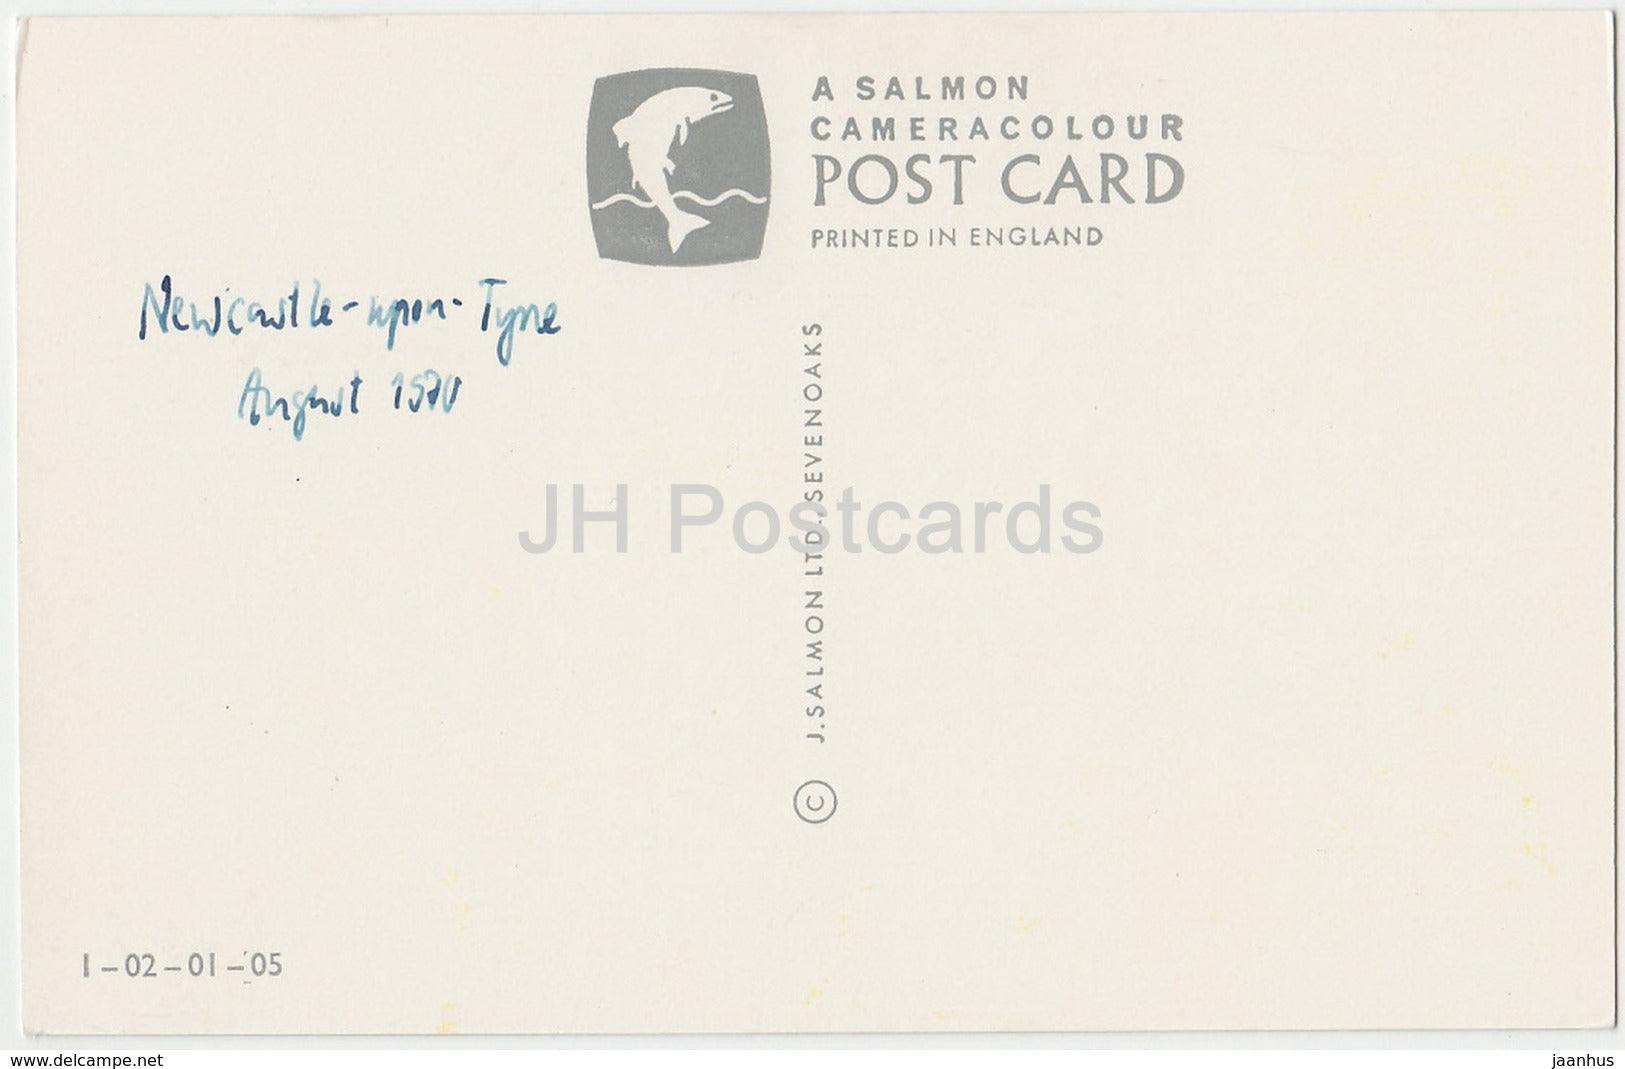 A SALMON
CAMERACOLOUR
POST CARD
PRINTED IN ENGLAND
Newcastle-upon-Tyne
August 1970
© J.SALMON LTD., SEVENOAKS
JH Postcards
1-02-01-05
www.delcampe.net
jaanhus